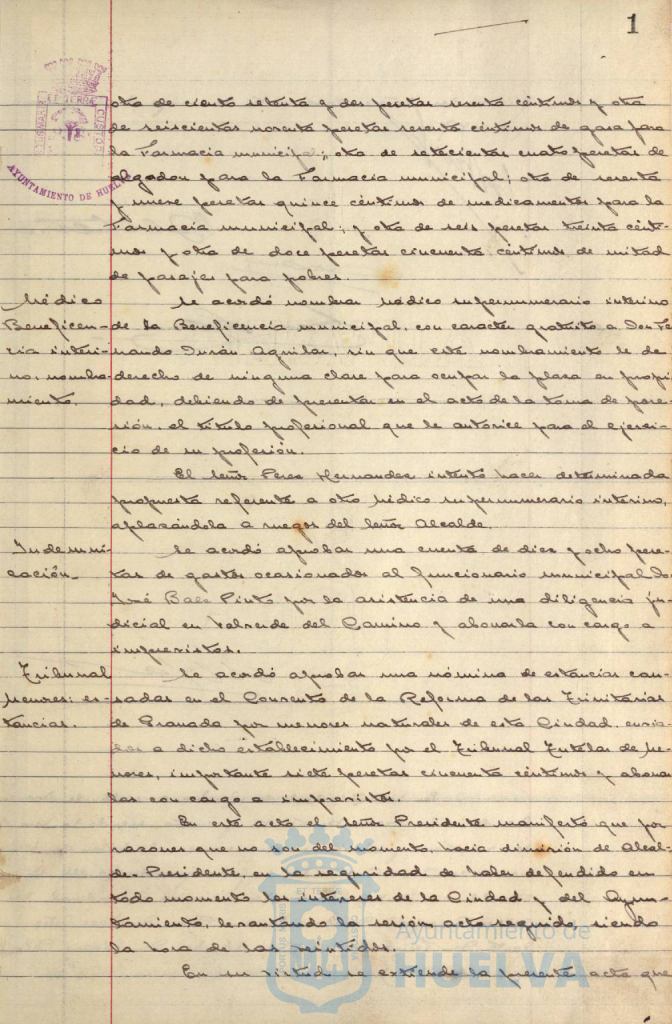 1
otra de ciento setenta y dos pesetas sesenta céntimos y otra
de seiscientas noventa pesetas sesenta céntimos de gasa para
la Farmacia municipal; otra de setecientas cuatro pesetas de
algodon para la Farmacia municipal; otra de sesenta
y nueve pesetas quince céntimos de medicamentos para la
Farmacia municipal; y otra de seis pesetas treinta cénti-
mos y otra de doce pesetas cincuenta céntimos de mitad
de pasajes para pobres.
Médico
Beneficen-
cia interi-
no, nombra-
miento.
Se acordó nombrar médico supernumerario interino
de la Beneficencia municipal, con caracter gratuito a Don Fer
nando Durán Aguilar, sin que este nombramiento le de
derecho de ninguna clase para ocupar la plaza en propie
dad, debiendo de presentar en el acto de la toma de pose-
sión, el título profesional que le autorice para el ejerci-
cio de su profesión.
El señor Perez Hernandez intentó hacer determinada
propuesta referente a otro médico supernumerario interino,
aplazándola a ruegos del señor Alcalde.
Indemni-
zación.
Se acordó aprobar una cuenta de diez y ocho pese-
tas de gastos ocasionados al funcionario municipal D.
José Pinto por la asistencia de una diligencia ju-
dicial en Valverde del Camino y abonarla con cargo a
imprevistos.
Tribunal
Menores: es-
tancias.
Se acordó aprobar una nómina de estancias cau-
sadas en el Convento de la Reforma de las Trinitarias
de Granada por menores naturales de esta Ciudad, envia-
dos a dicho establecimiento por el Tribunal Tutelar de Me-
nores, importante siete pesetas cincuenta céntimos y abonar
las con cargo a imprevistos.
En este acto el señor Presidente manifestó que por
razones que no son del momento, hacia dimisión de Alcal-
de-Presidente, en la seguridad de haber defendido en
todo momento los intereses de la Ciudad y del Ayun-
tamiento, levantando la sesión acto seguido, siendo
la hora de las veintidós.
En su virtud se extiende la presente acta que
AYUNTAMIENTO DE HUELVA
Ayuntamiento de
HUELVA